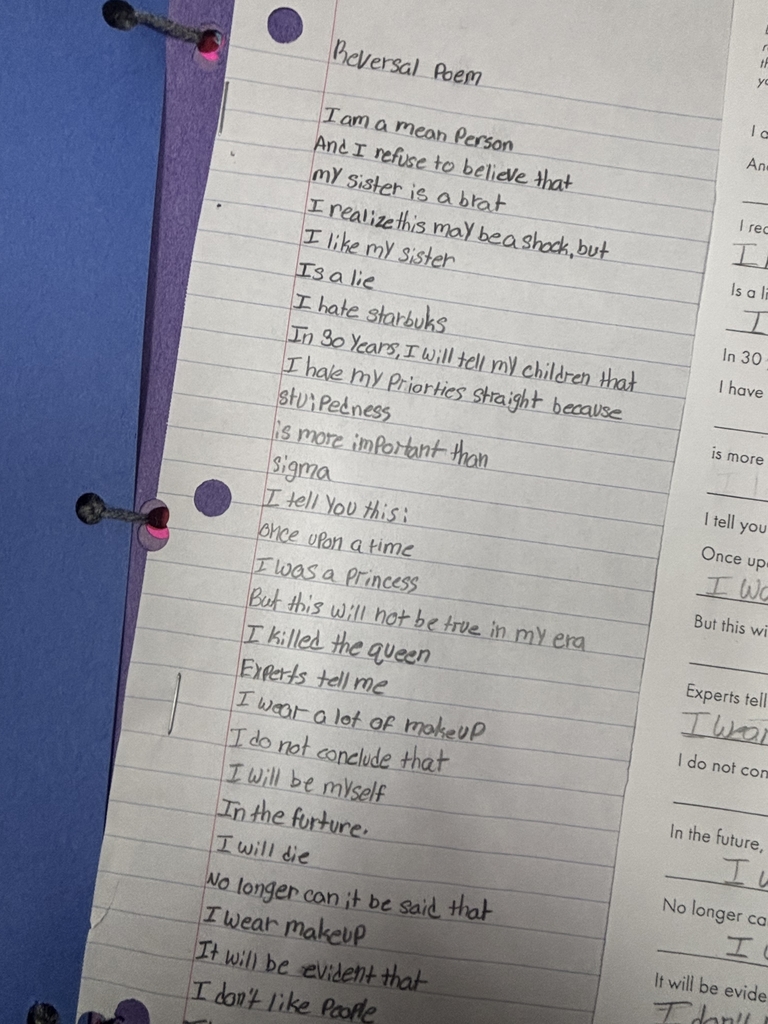 Reversal Poem
I am a mean Person
And I refuse to believe that
my sister is a brat
I realize this may be a shock, but
I like my sister
Is a lie
I hate starbuks
In 30 years, I will tell my children that
I have my Priorties straight because
stuipedness
is more important than
sigma
I tell you this:
once upon a time
I was a Princess
But this will not be true in my era
I killed the queen
Experts tell me
I wear a lot of makeup
I do not conclude that
I will be myself
In the furture.
I will die
No longer can it be said that
I wear makeup
It will be evident that
I don't like People
I
Is a li
I
In 30
I have
is more
I tell you
Once up
I wa
But this wi
Experts tell
I wear
I do not con
In the future,
I w
No longer ca
I
It will be evide
I don't